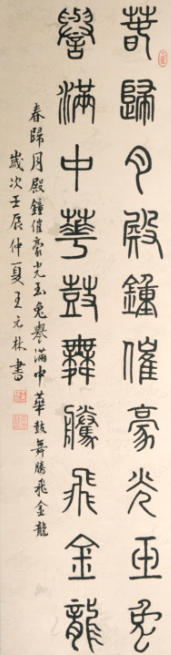 春歸月殿鐘催豪光玉兔
譽滿中華鼓舞騰飛金龍
春歸月殿鐘催豪光玉兔譽滿中華鼓舞騰飛金龍
歲次壬辰仲夏王元林書